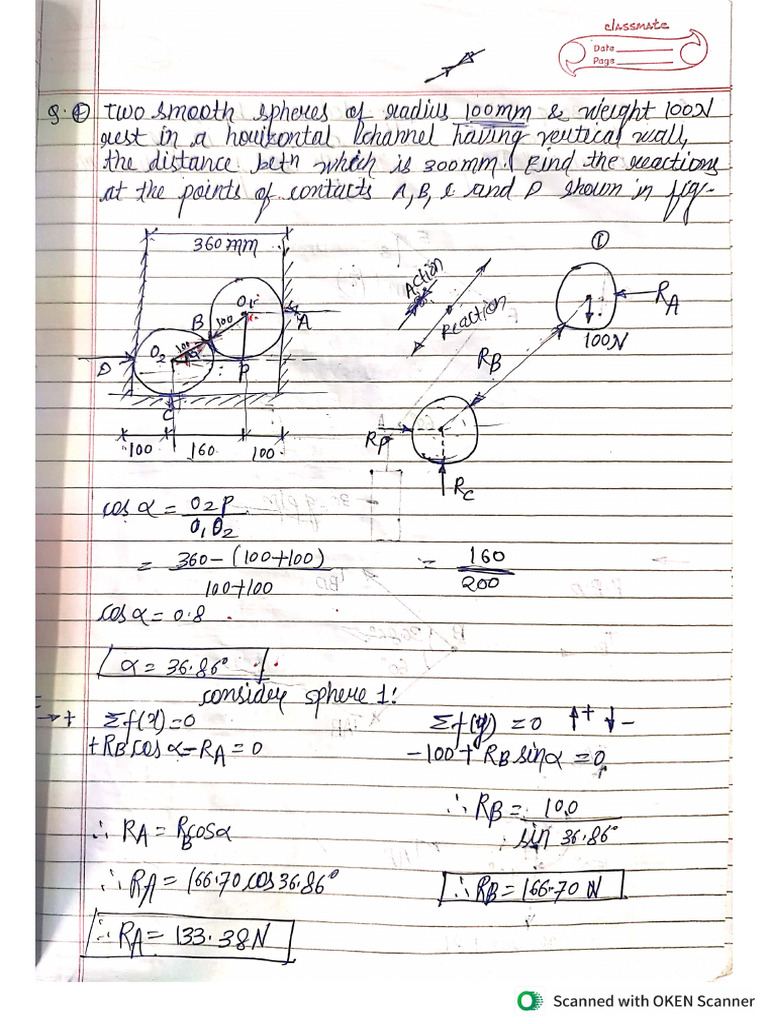 classmate
Date
Page
Q. ① Two smooth spheres of radius 100mm & weight 100N
rest in a hourizontal channel having vertical wall,
the distance betn which is 300mm. Find the reactions
at the points of contacts A, B, C and D shown in fig-
360mm
①
Action
Reaction
O1
100
B
A
RA
100N
O2
100
D
P
RB
C
RD
100
160
100
RC
cos α = O2P / O1O2
= 360-(100+100) / 100+100 = 160 / 200
cos α = 0.8
α = 36.86°
consider sphere 1:
→+ Σf(x)=0
Σf(y) = 0 ↑+ ↓-
+RB cos α - RA = 0
-100 + RB sinα = 0
∴ RB = 100 / sin 36.86°
∴ RA = RB cosα
∴ RA = 166.70 cos 36.86°
∴ RB = 166.70 N
∴ RA = 133.38N
Scanned with OKEN Scanner